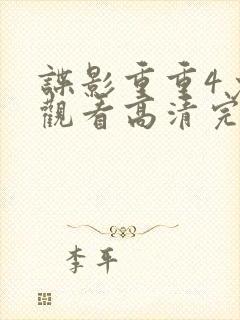 諜影重重4
觀看高清完
李平